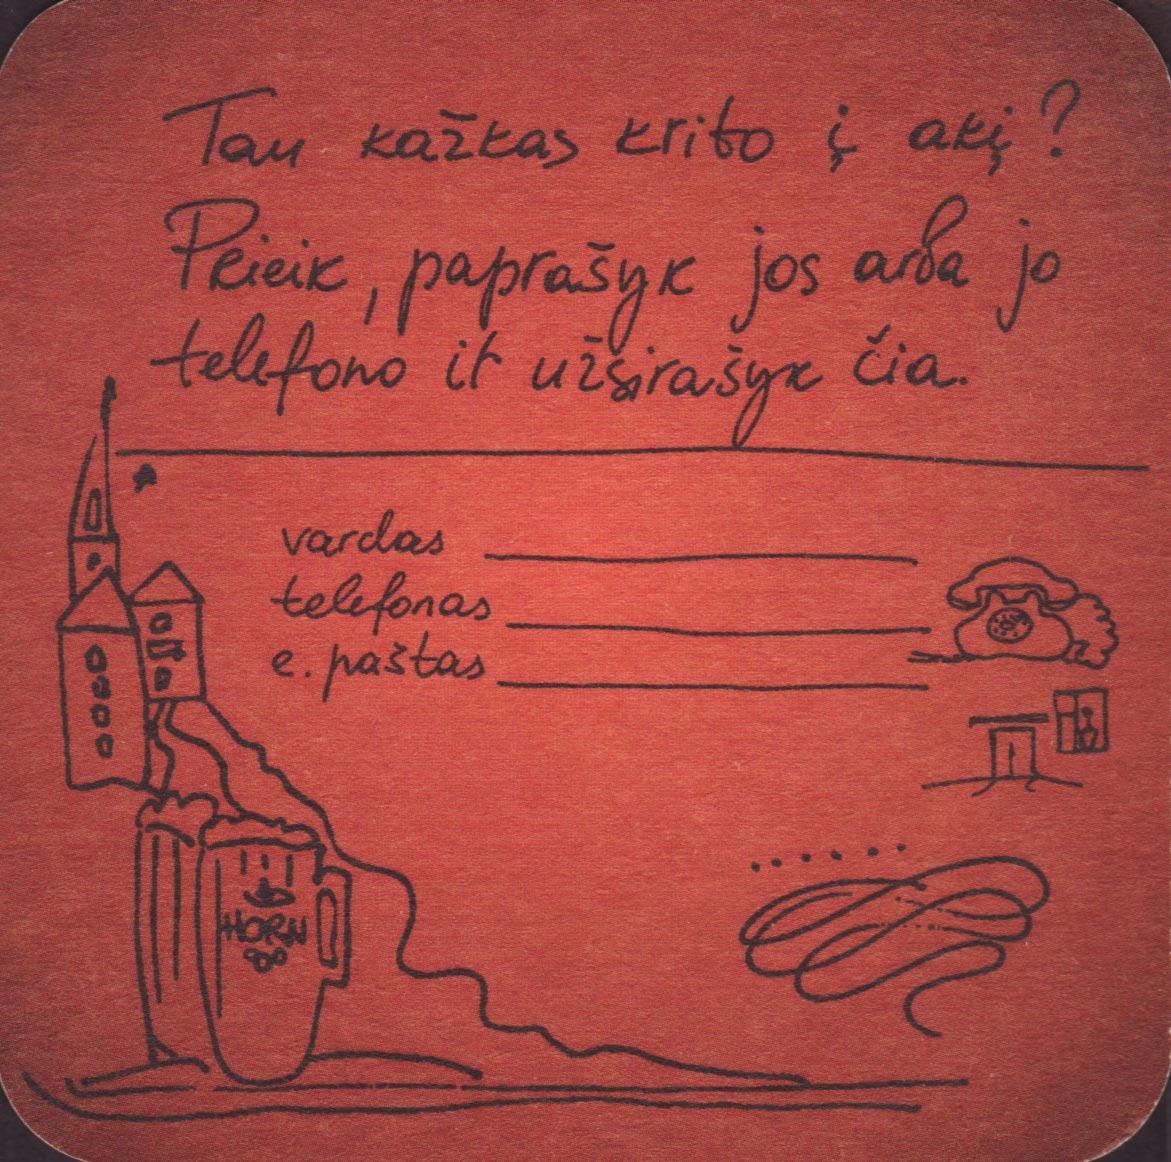 Tau kažkas krito į akį?
Prieik, paprašyk jos arba jo
telefono ir užsirašyk čia.
vardas
telefonas
e. paštas
HORN
80